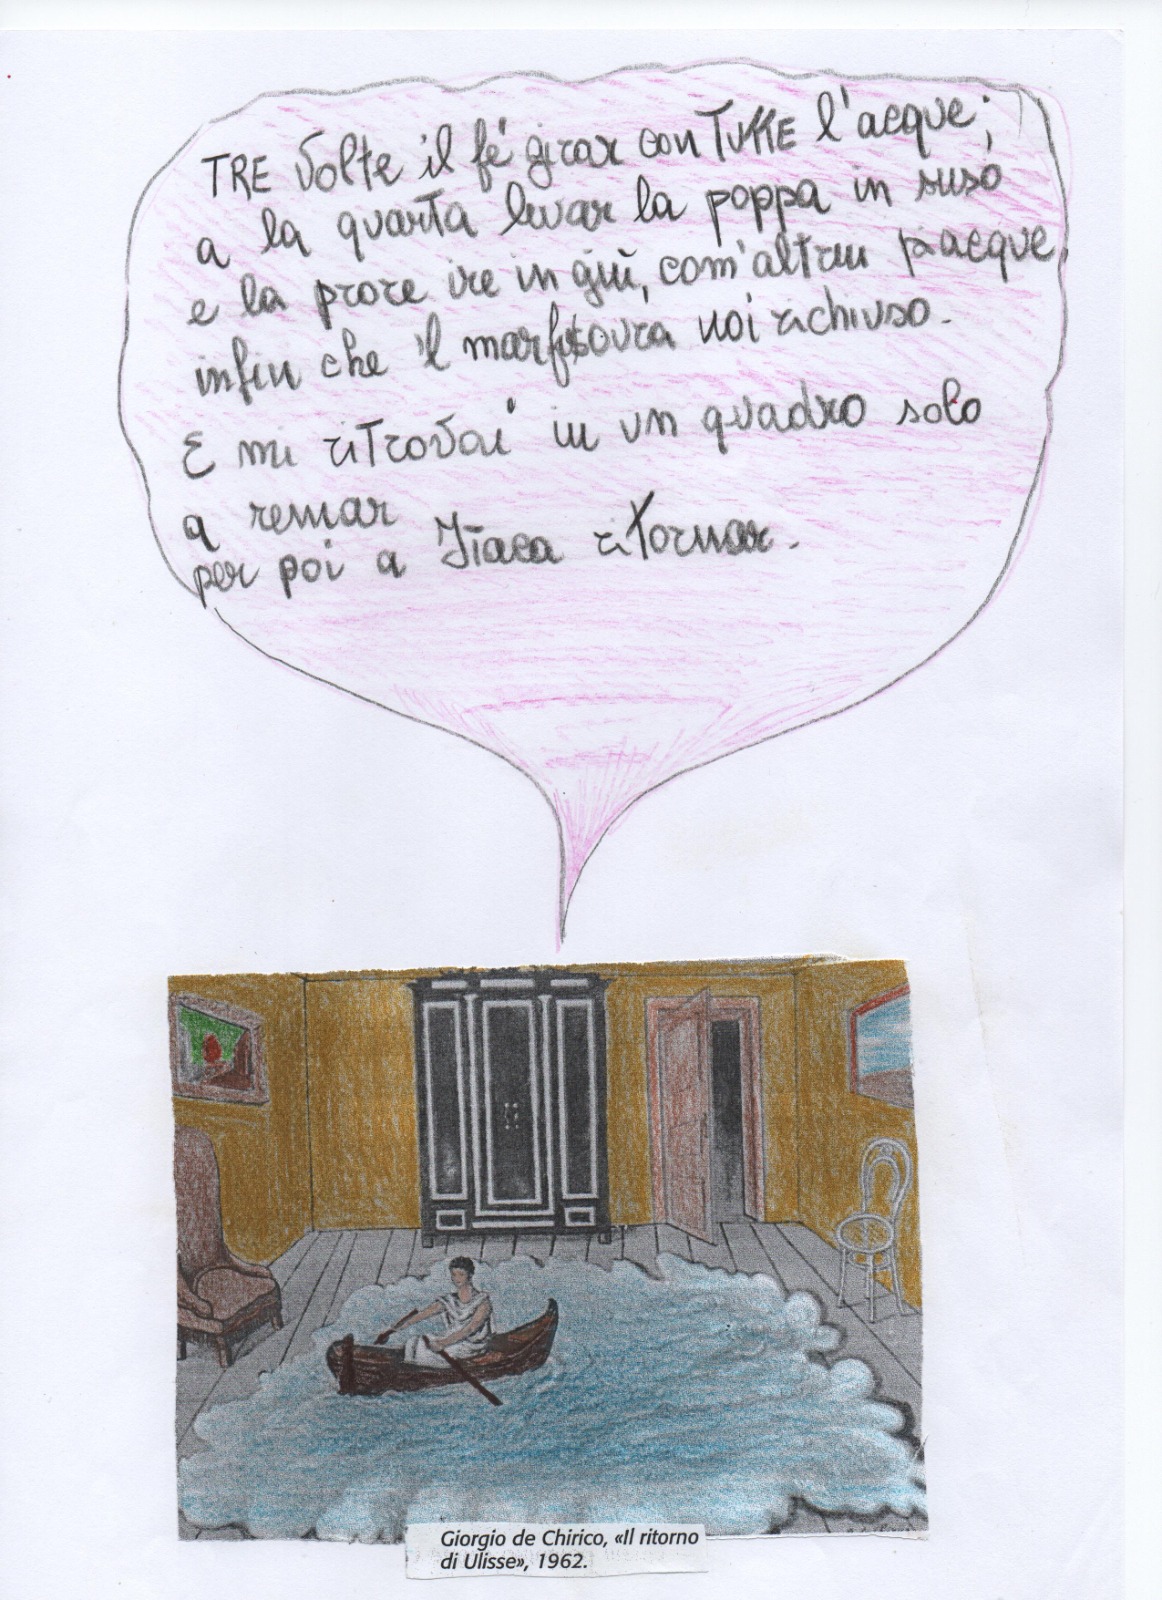 TRE volte il fé girar con TUTTE l'acque;
a la quarta levar la poppa in suso
e la prore ire in giù, com'altrui piacque
infin che 'l mar fu sovra noi richiuso.
E mi ritrovai in un quadro solo
a remar
per poi a Itaca ritornar.
Giorgio de Chirico, «Il ritorno
di Ulisse», 1962.